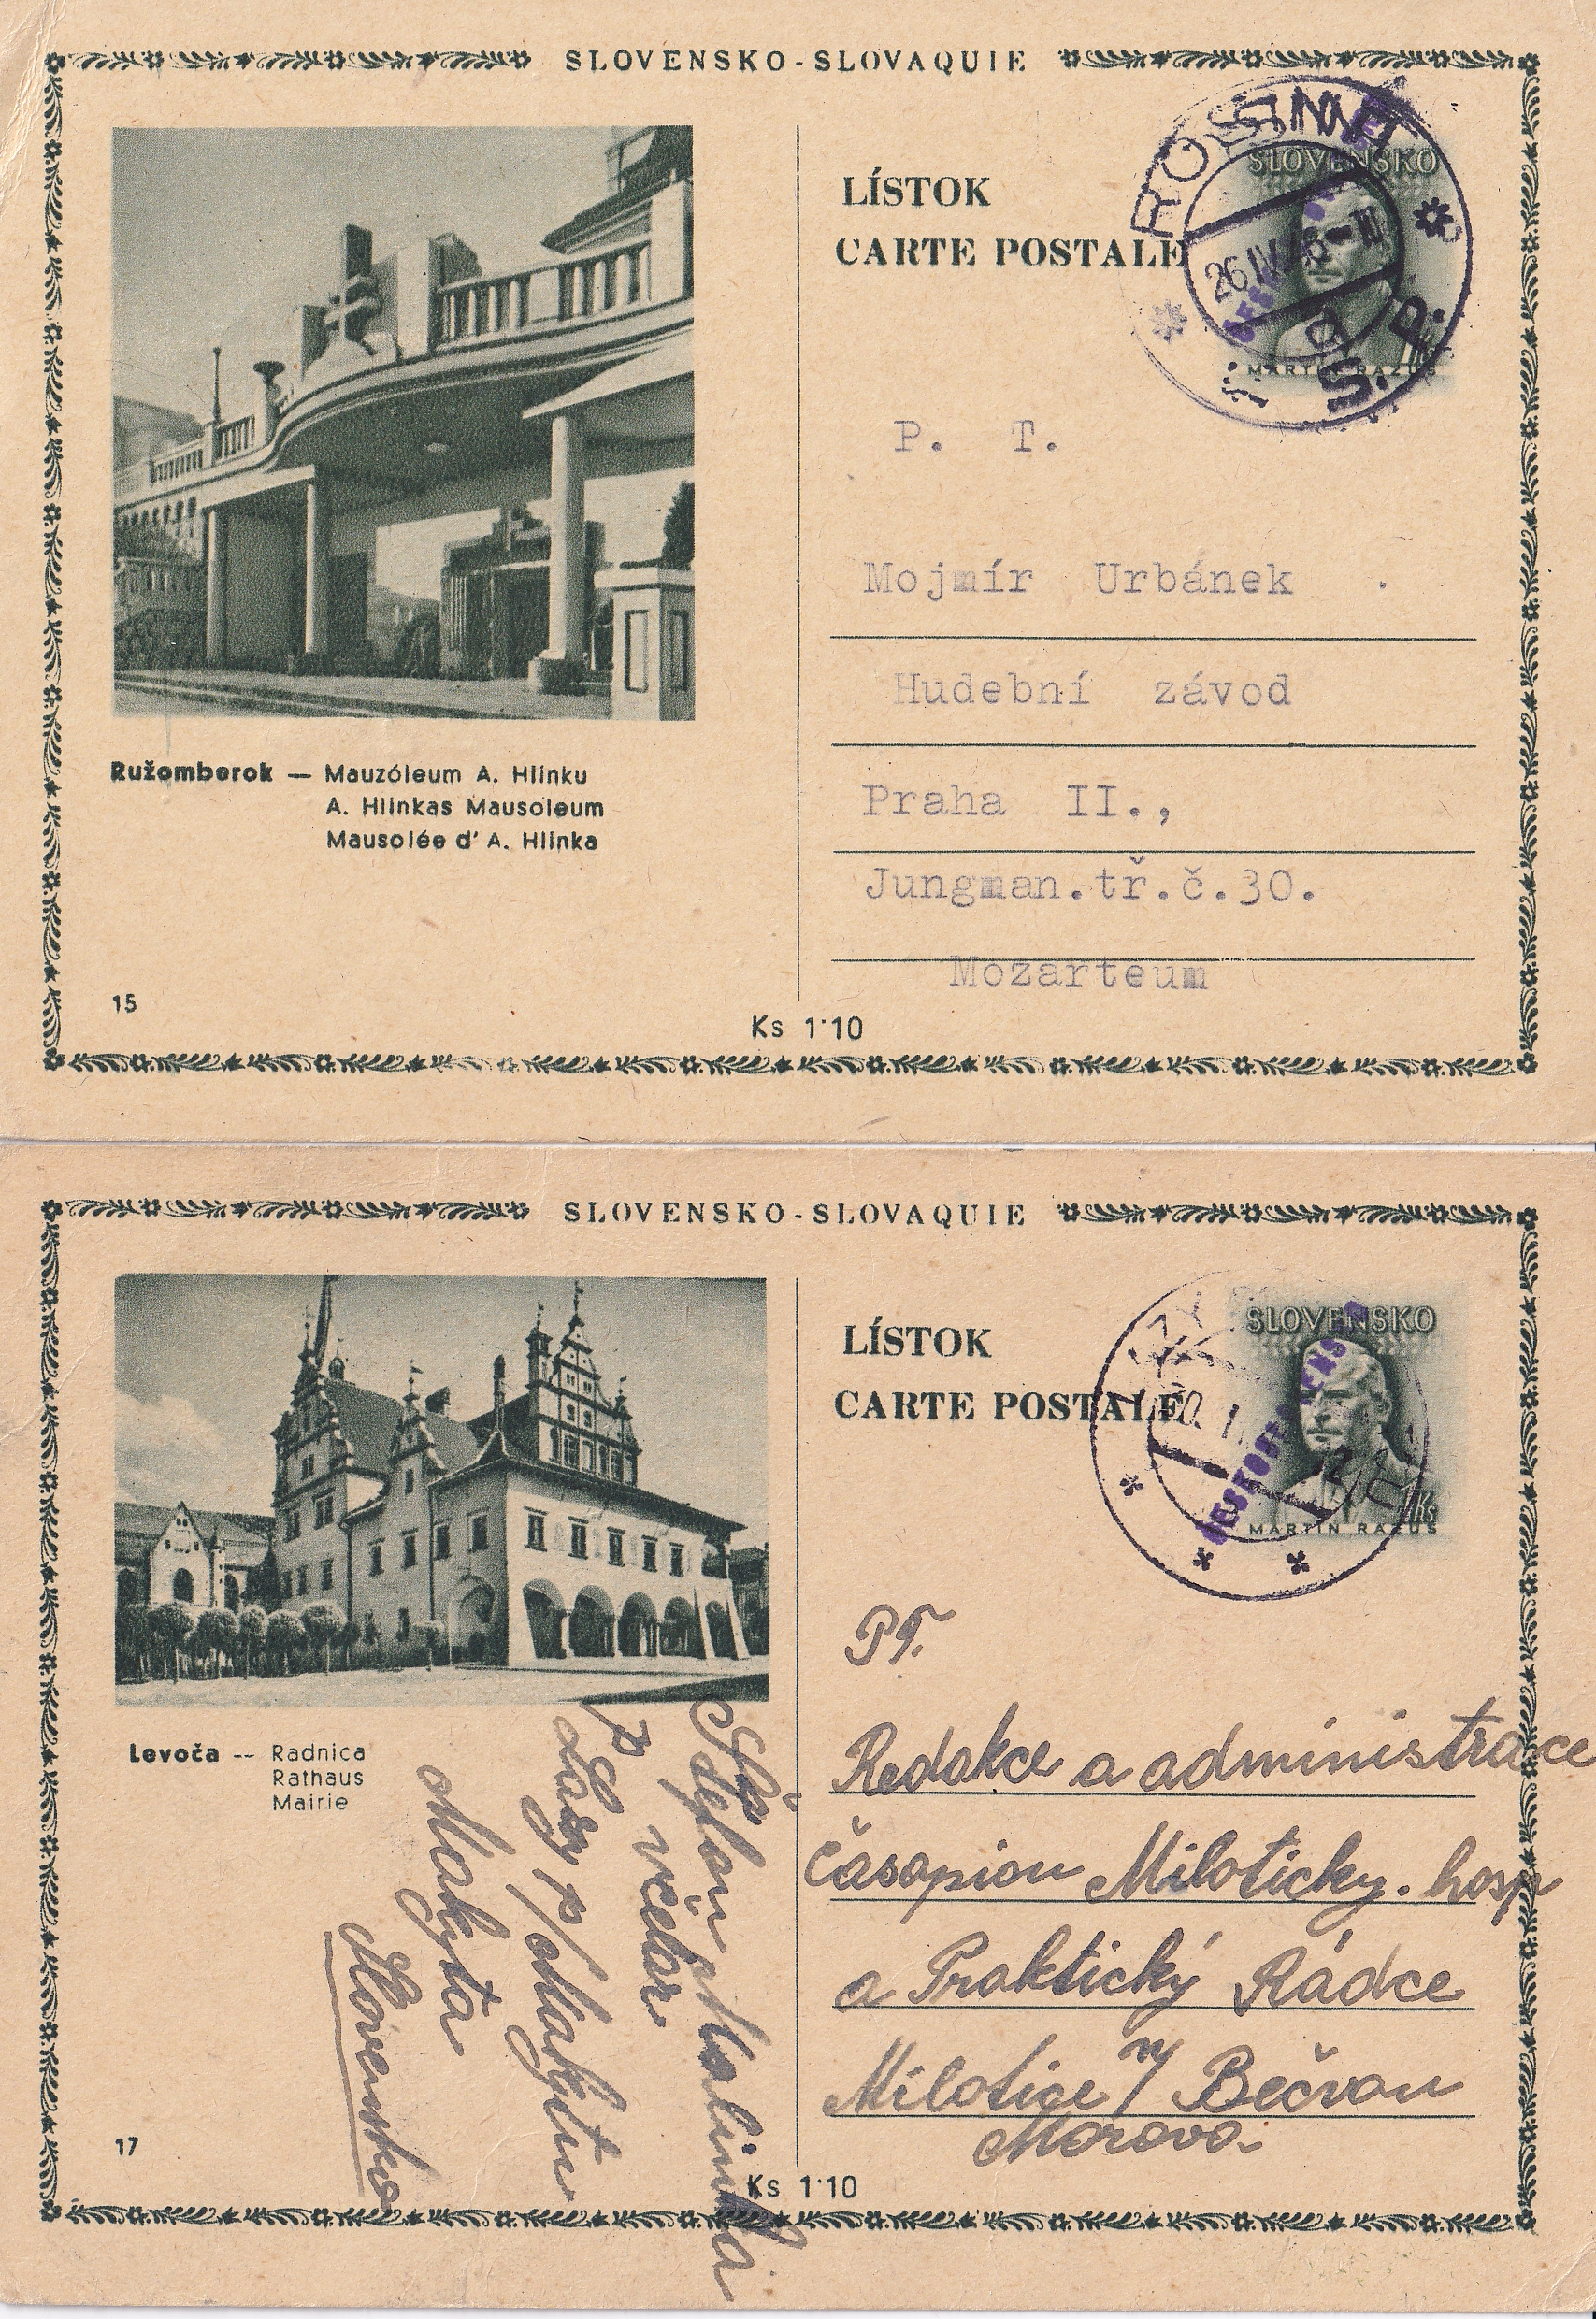 SLOVENSKO-SLOVAQUIE
LÍSTOK
CARTE POSTALE
SLOVENSKO
MARTIN RÁZUS
P. T.
Mojmír Urbánek
Hudební závod
Praha II.,
Jungman.tř.č.30.
Mozarteum
Ružomberok — Mauzóleum A. Hlinku
A. Hlinkas Mausoleum
Mausolée d' A. Hlinka
15
Ks 1·10
SLOVENSKO-SLOVAQUIE
LÍSTOK
CARTE POSTALE
SLOVENSKO
ČESKOSLOVENSKO
MARTIN RÁZUS
PT.
Redakce a administrace
časopisu Miloticky. hosp
a Praktický Rádce
Milotice n/ Bečvou
Morava.
Levoča -- Radnica
Rathaus
Mairie
Štefan Malinka
včelár
p. Lazy p/Makytu
Makyta
Slovensko
17
Ks 1·10